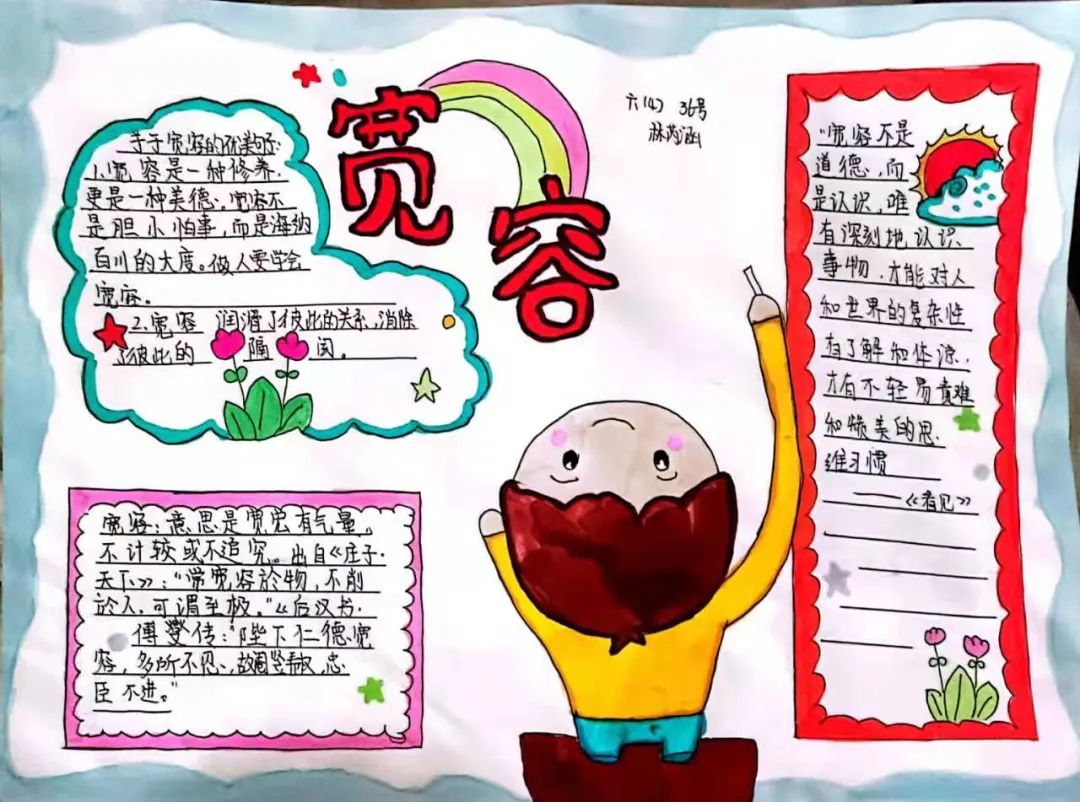 宽容
六(4) 36号
关于宽容的优美句子
1.宽容是一种修养.
更是一种美德.宽容不
是胆小怕事,而是海纳
百川的大度。做人要学会
宽容。
2.宽容 润滑了彼此的关系,消除
了彼此的 隔 阂。
宽容:意思是宽宏有气量,
不计较或不追究。出自《庄子·
天下》:“常宽容於物,不削
於人,可谓至极。”《后汉书·
傅燮传:“陛下仁德宽
容,多所不忍,故阉竖弄权,忠
臣不进。”
“宽容不是
道德,而
是认识,唯
有深刻地认识
事物,才能对人
和世界的复杂性
有了解和体谅,
才有不轻易责难
和赞美的思
维习惯
——《看见》